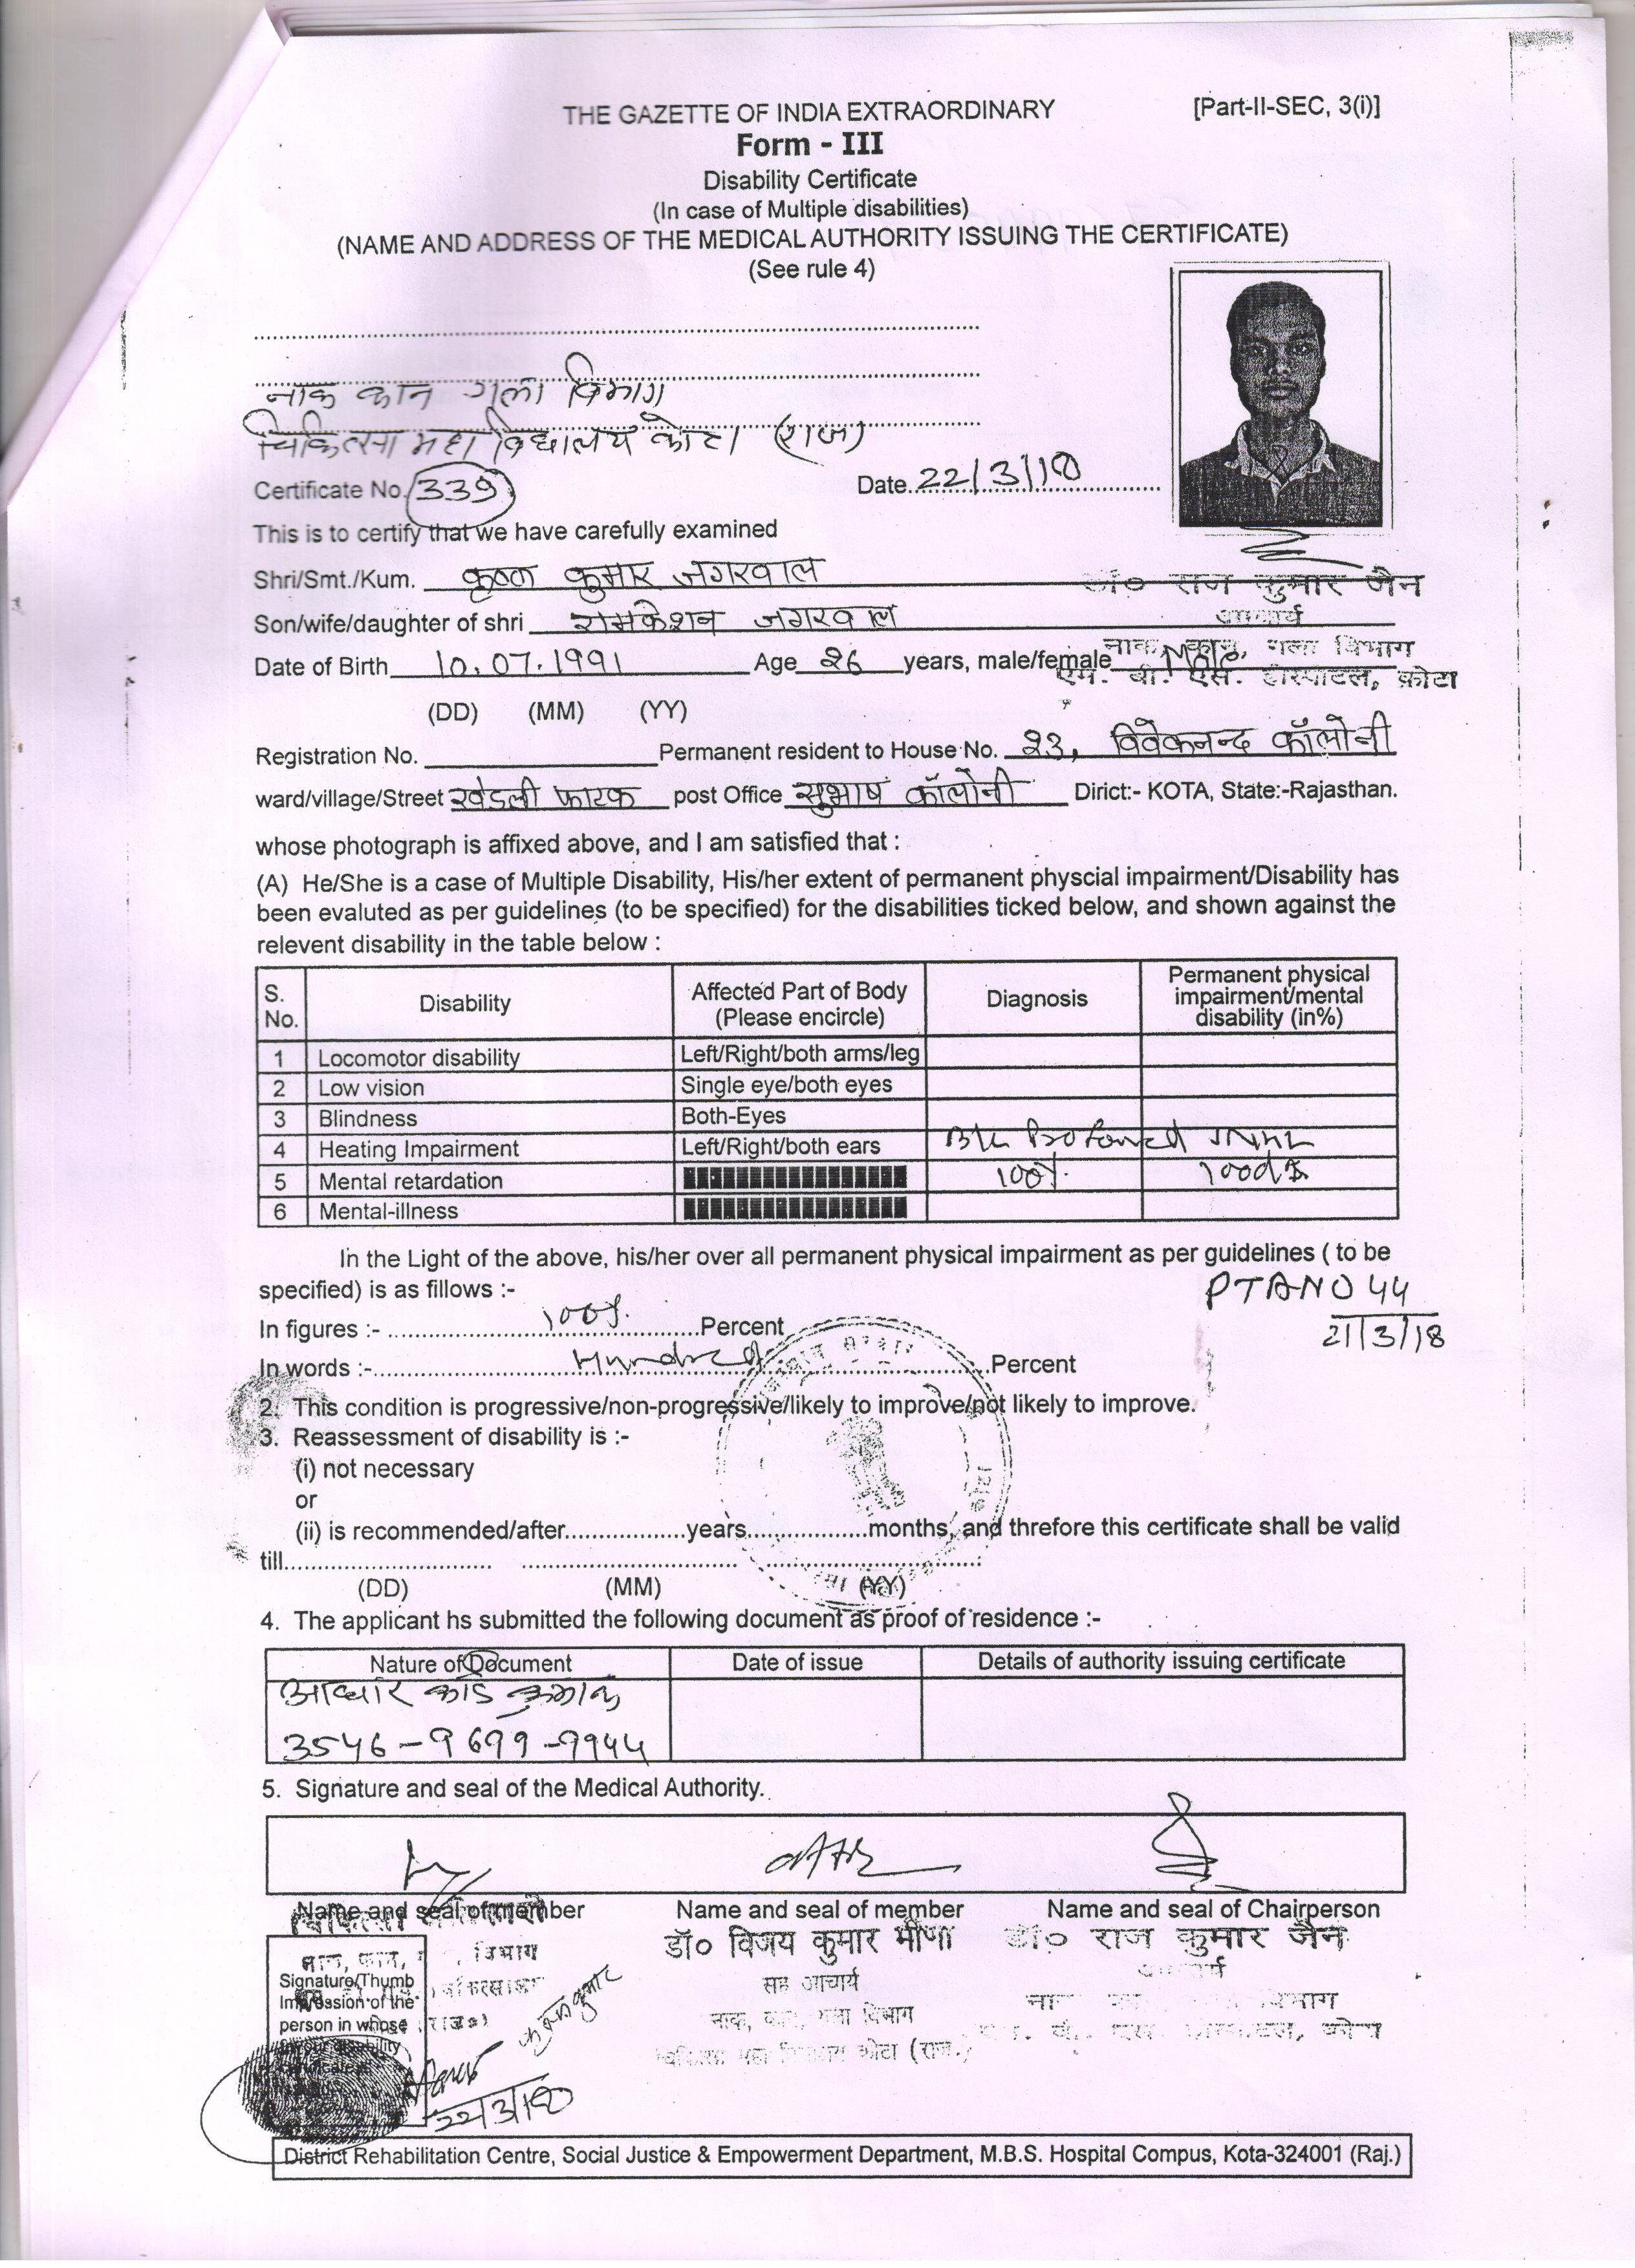 THE GAZETTE OF INDIA EXTRAORDINARY [Part-II-SEC, 3(i)]
Form - III
Disability Certificate
(In case of Multiple disabilities)
(NAME AND ADDRESS OF THE MEDICAL AUTHORITY ISSUING THE CERTIFICATE)
(See rule 4)
नाक कान गला विभाग
चिकित्सा महाविद्यालय कोटा (राज)
Certificate No. 339 Date 22/3/18
This is to certify that we have carefully examined
Shri/Smt./Kum. कृष्ण कुमार जगरवाल
डॉ० राज कुमार जैन
Son/wife/daughter of shri रामकेशन जगरवाल
आचार्य
Date of Birth 10.07.1991 Age 26 years, male/female Male
नाक, कान, गला विभाग
एम. बी. एस. हॉस्पीटल, कोटा
(DD) (MM) (YY)
Registration No. Permanent resident to House No. 23, विवेकनन्द कॉलोनी
ward/village/Street खेडली फाटक post Office सुभाष कॉलोनी Dirict:- KOTA, State:-Rajasthan.
whose photograph is affixed above, and I am satisfied that :
(A) He/She is a case of Multiple Disability, His/her extent of permanent physcial impairment/Disability has
been evaluted as per guidelines (to be specified) for the disabilities ticked below, and shown against the
relevent disability in the table below :
S. No. Disability Affected Part of Body (Please encircle) Diagnosis Permanent physical impairment/mental disability (in%)
1 Locomotor disability Left/Right/both arms/leg
2 Low vision Single eye/both eyes
3 Blindness Both-Eyes
4 Heating Impairment Left/Right/both ears B/L Profound SNHL
5 Mental retardation 100%
6 Mental-illness
In the Light of the above, his/her over all permanent physical impairment as per guidelines ( to be
specified) is as fillows :-
PTA NO 44
21/3/18
In figures :- 100% Percent
In words :- Hundred Percent
2. This condition is progressive/non-progressive/likely to improve/not likely to improve.
3. Reassessment of disability is :-
(i) not necessary
or
(ii) is recommended/after years months, and threfore this certificate shall be valid
till
(DD) (MM) (YY)
4. The applicant hs submitted the following document as proof of residence :-
Nature of Document Date of issue Details of authority issuing certificate
आधार कार्ड क्रमांक
3546-9699-9944
5. Signature and seal of the Medical Authority.
Name and seal of member Name and seal of member Name and seal of Chairperson
डॉ० विजय कुमार मीणा डॉ० राज कुमार जैन
सह आचार्य आचार्य
नाक, कान, गला विभाग
कोटा (राज.)
Signature/Thumb
Impression of the
person in whose
कृष्ण कुमार
22/3/18
District Rehabilitation Centre, Social Justice & Empowerment Department, M.B.S. Hospital Compus, Kota-324001 (Raj.)